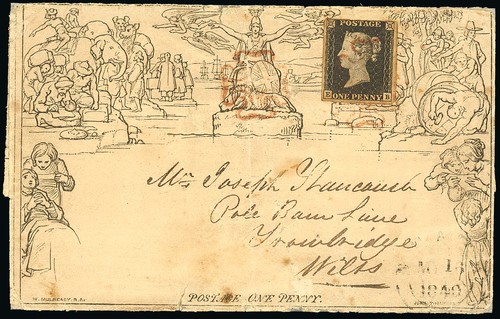 POSTAGE
ONE PENNY
E B
Mr Joseph Hancock
Pole Barn Lane
Trowbridge
Wilts
1840
W. MULREADY, R.A.
POSTAGE ONE PENNY.